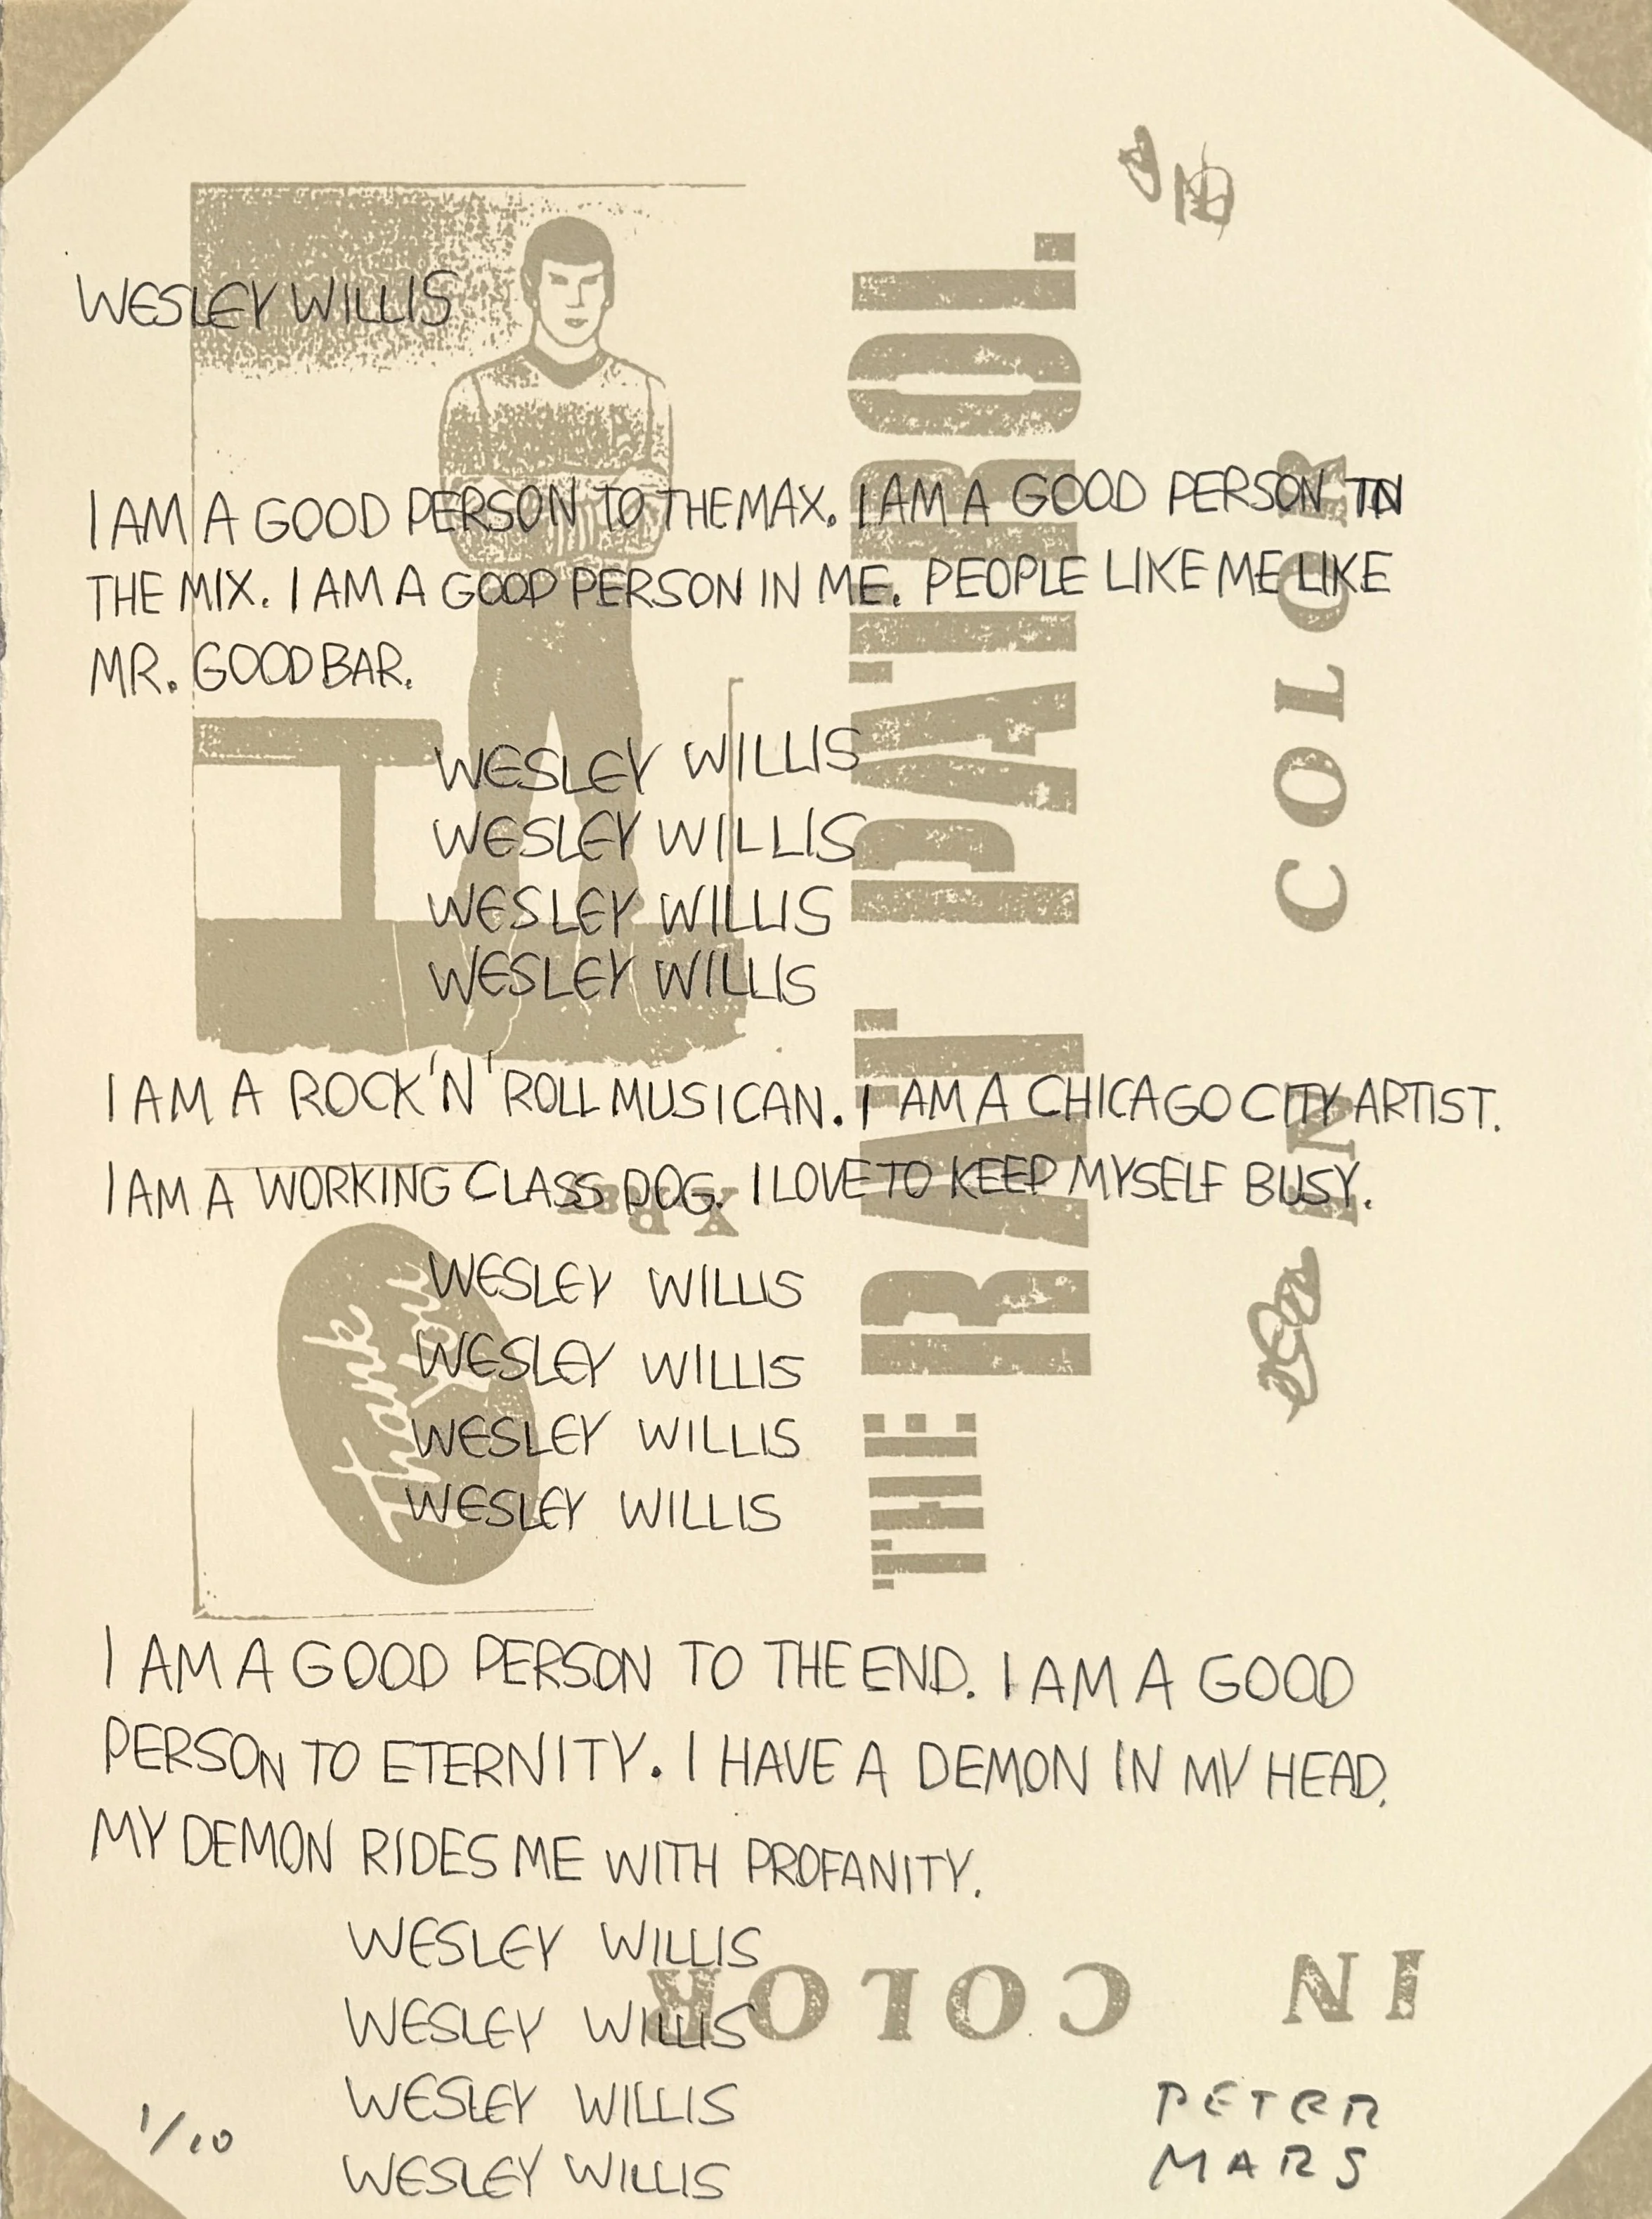 WESLEY WILLIS
I AM A GOOD PERSON TO THE MAX. I AM A GOOD PERSON IN
THE MIX. I AM A GOOD PERSON IN ME. PEOPLE LIKE ME LIKE
MR. GOODBAR.
WESLEY WILLIS
WESLEY WILLIS
WESLEY WILLIS
WESLEY WILLIS
I AM A ROCK 'N' ROLL MUSICAN. I AM A CHICAGO CITY ARTIST.
I AM A WORKING CLASS DOG. I LOVE TO KEEP MYSELF BUSY.
WESLEY WILLIS
WESLEY WILLIS
WESLEY WILLIS
WESLEY WILLIS
I AM A GOOD PERSON TO THE END. I AM A GOOD
PERSON TO ETERNITY. I HAVE A DEMON IN MY HEAD.
MY DEMON RIDES ME WITH PROFANITY.
WESLEY WILLIS
WESLEY WILLIS
WESLEY WILLIS
WESLEY WILLIS
Thank
You
THE RAT PATROL
IN COLOR
IN COLOR
1/10
PETER
MARS